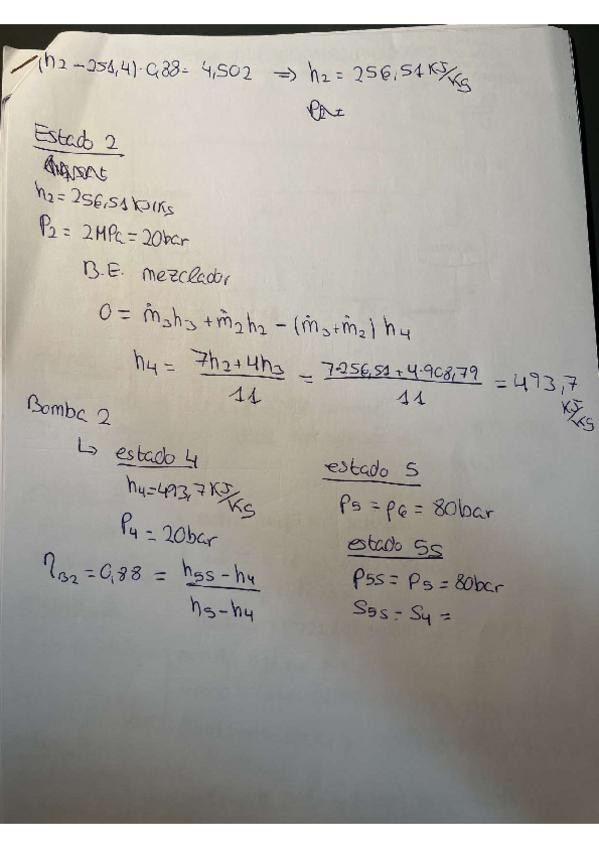 (h2 - 251,4) · 0,88 = 4,502 ⇒ h2 = 256,51 KJ/KG
Estado 2
h2 = 256,51 KJ/KG
P2 = 2MPa = 20bar
B.E. mezclador
0 = ṁ3h3 + ṁ2h2 - (ṁ3+ṁ2) h4
h4 = (7h2 + 4h3)/11 = (7·256,51 + 4·908,79)/11 = 493,7 KJ/KG
Bomba 2
↳ estado 4
h4 = 493,7 KJ/KG
P4 = 20bar
ηB2 = 0,88 = (h5s - h4)/(h5 - h4)
estado 5
P5 = P6 = 80bar
estado 5s
P5s = P5 = 80bar
S5s = S4 =